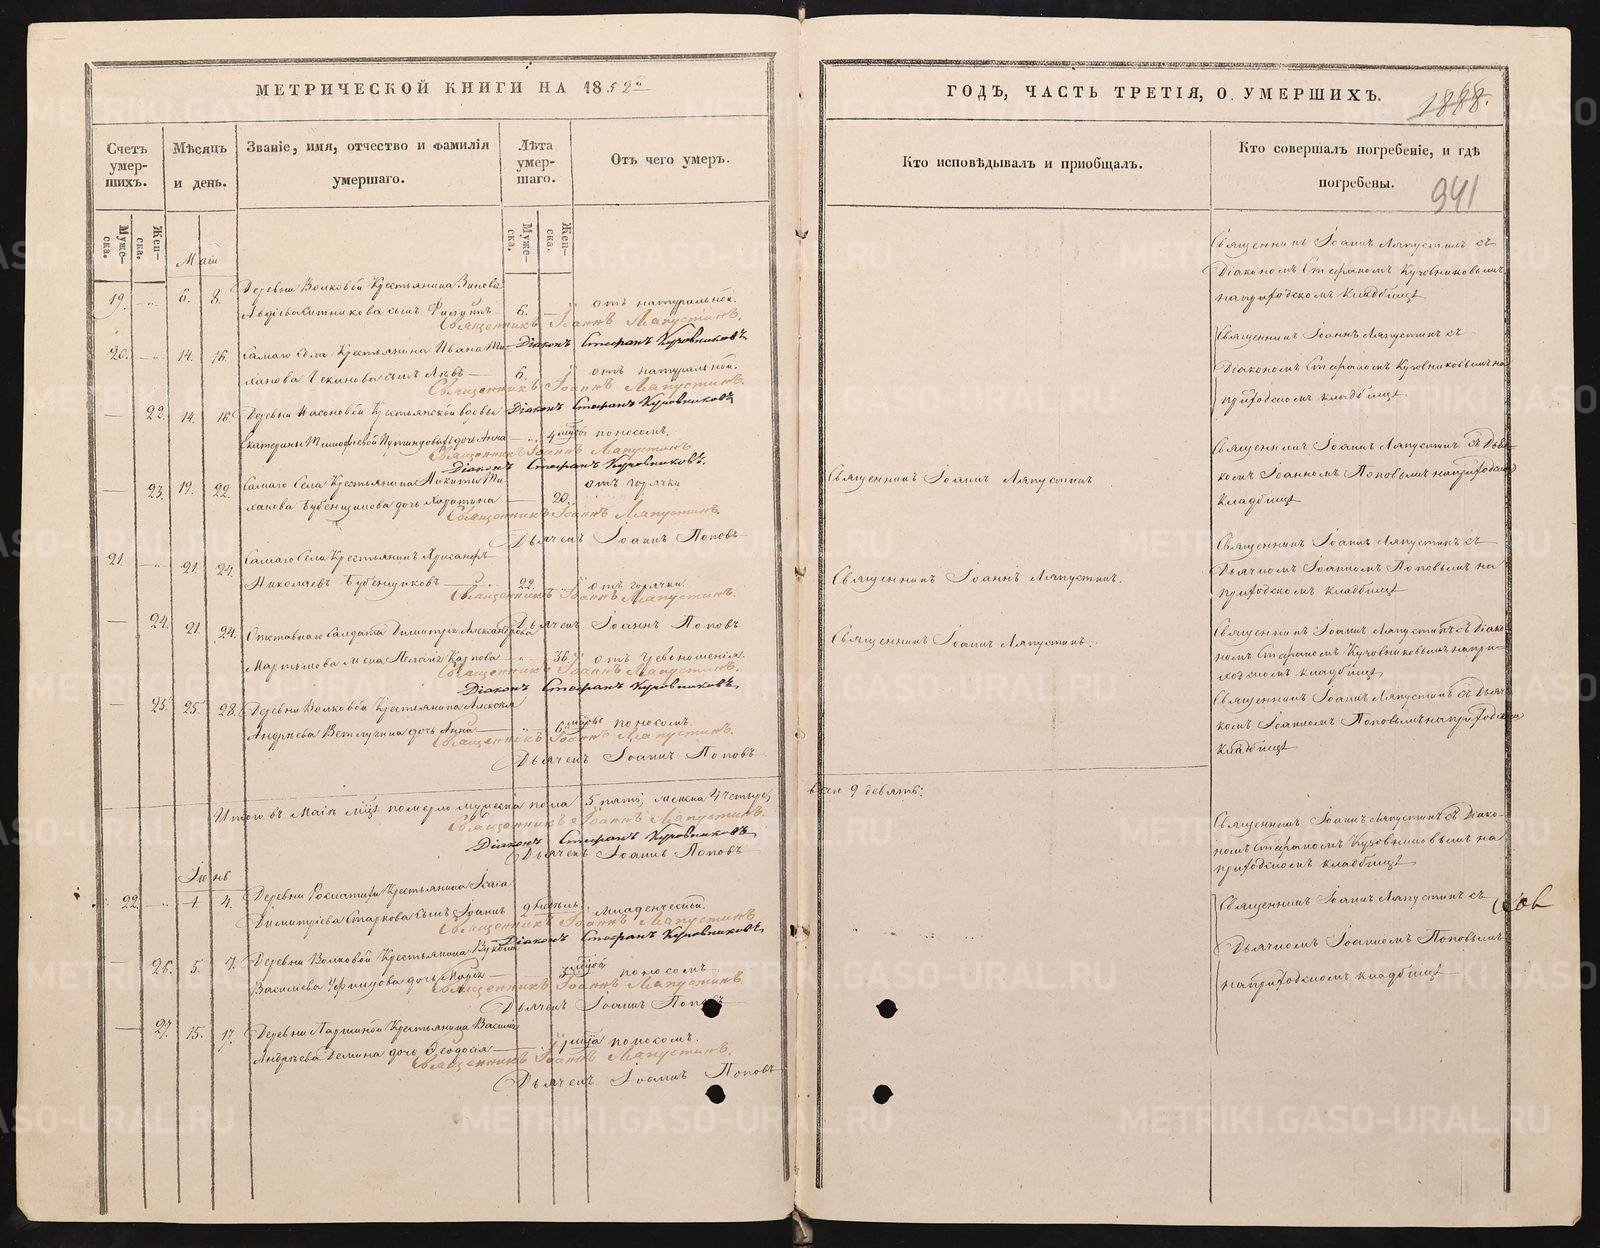 МЕТРИЧЕСКОЙ КНИГИ НА 1852й
Счетъ умер-шихъ.
Мѣсяцъ и день.
Званіе, имя, отчество и фамилія умершаго.
Лѣта умер-шаго.
Отъ чего умеръ.
Мужс-ска.
Жен-ска.
Мужс-ска.
Жен-ска.
Маій
19. 6. 8. Деревни Волковой Крестьянина Зиновія
сынъ Филиппъ 6. отъ натуральной.
Священникъ Іоаннъ Ляпустинъ.
Діаконъ Стефанъ Куровниковъ
20. 14. 16. Самаго Села Крестьянина Ивана
сынъ Левъ 6. отъ натуральной.
Священникъ Іоаннъ Ляпустинъ.
Діаконъ Стефанъ Куровниковъ
22. 14. 16. Деревни Крестьянской вдовы
Екатерины Тимофѣевой дочь Анна 4 поносомъ.
Священникъ Іоаннъ Ляпустинъ
Діаконъ Стефанъ Куровниковъ.
23. 19. 22. Самаго Села Крестьянина Никиты отъ горячки
Бубенщикова дочь Харитина 20.
Священникъ Іоаннъ Ляпустинъ.
Дьячекъ Іоаннъ Поповъ
21. 21. 24. Самаго Села Крестьянинъ Хрисанфъ
Николаевъ Бубенщиковъ 22 отъ горячки.
Священникъ Іоаннъ Ляпустинъ.
Дьячекъ Іоаннъ Поповъ
24. 21. 24. Отставнаго Солдата Димитрія Александрова
жена Пелагія Карпова 36. отъ
Священникъ Іоаннъ Ляпустинъ.
Діаконъ Стефанъ Куровниковъ
25. 25. 28. Деревни Волковой Крестьянина Алексѣя
Андреева Ветлугина дочь Анна 6 поносомъ
Священникъ Іоаннъ Ляпустинъ.
Дьячекъ Іоаннъ Поповъ
Итого въ Маіѣ померло мужеска пола 5 пять, женска 4 четыре,
Священникъ Іоаннъ Ляпустинъ.
Діаконъ Стефанъ Куровниковъ
Дьячекъ Іоаннъ Поповъ
Іюнь
22. 1. 4. Деревни Крестьянина Исаіа
Димитріева Старкова сынъ Іоаннъ 2 младенческой.
Священникъ Іоаннъ Ляпустинъ
Діаконъ Стефанъ Куровниковъ
26. 5. 7. Деревни Волковой Крестьянина
Василіева дочь Марія 3 поносомъ
Священникъ Іоаннъ Ляпустинъ
Дьячекъ Іоаннъ Поповъ
27. 15. 17. Деревни Крестьянина Василія
Андреева Демина дочь Ѳеодосія поносомъ.
Священникъ Іоаннъ Ляпустинъ.
Дьячекъ Іоаннъ Поповъ
ГОДЪ, ЧАСТЬ ТРЕТІЯ, О УМЕРШИХЪ.
1888.
Кто исповѣдывалъ и пріобщалъ.
Кто совершалъ погребеніе, и гдѣ погребены.
941
Священникъ Іоаннъ Ляпустинъ съ
Діакономъ Стефаномъ Куровниковымъ
на приходскомъ кладбищѣ
Священникъ Іоаннъ Ляпустинъ съ
Діакономъ Стефаномъ Куровниковымъ на
приходскомъ кладбищѣ
Священникъ Іоаннъ Ляпустинъ
Священникъ Іоаннъ Ляпустинъ съ Дьяч-
комъ Іоанномъ Поповымъ на приходскомъ
кладбищѣ
Священникъ Іоаннъ Ляпустинъ.
Священникъ Іоаннъ Ляпустинъ съ
Дьячкомъ Іоанномъ Поповымъ на
приходскомъ кладбищѣ
Священникъ Іоаннъ Ляпустинъ.
Священникъ Іоаннъ Ляпустинъ съ Діако-
номъ Стефаномъ Куровниковымъ на при-
ходскомъ кладбищѣ
Священникъ Іоаннъ Ляпустинъ съ Дьяч-
комъ Іоанномъ Поповымъ на приходском
кладбищѣ
всѣхъ 9 девять:
Священникъ Іоаннъ Ляпустинъ съ Діако-
номъ Стефаномъ Куровниковымъ на
приходскомъ кладбищѣ
Священникъ Іоаннъ Ляпустинъ съ
Дьячкомъ Іоанномъ Поповымъ
на приходскомъ кладбищѣ
METRIKI.GASO-URAL.RU